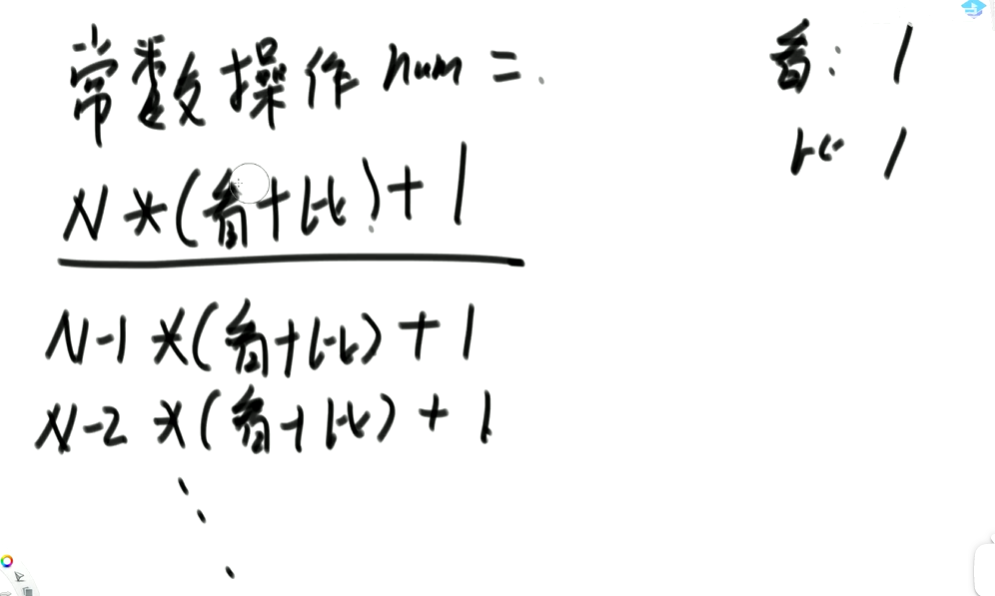 常数操作 num =
N * (看+比) + 1
N-1 * (看+比) + 1
N-2 * (看+比) + 1
看: 1
比 1